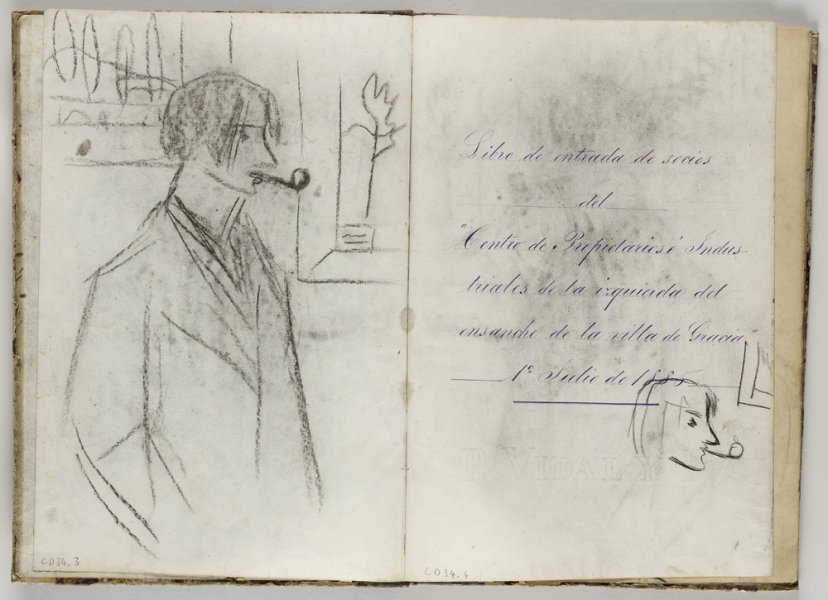 Libro de entrada de socios
del
"Centro de Propietarios é Indus-
triales de la izquierda del
ensanche de la villa de Gracia"
1º Julio de 1885
CD34.3
CD34.4